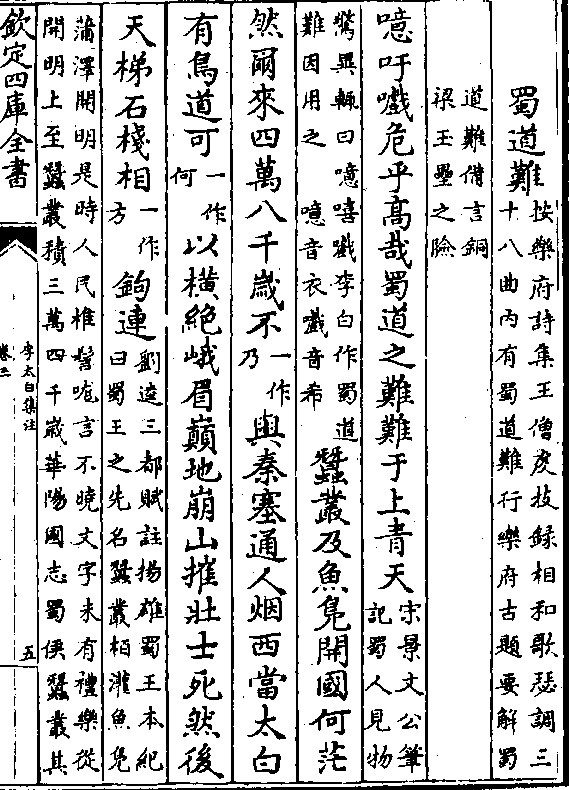 蜀道難
按樂府詩集王僧䖍技録相和歌瑟調三
十八曲内有蜀道難行樂府古題要解蜀
道難備言銅
梁玉壘之險
噫吁嚱危乎髙哉蜀道之難難于上青天
宋景文公筆
記蜀人見物
驚異輒曰噫嘻嚱李白作蜀道
難因用之 噫音衣嚱音希
蠶叢及魚鳬開國何茫
然爾來四萬八千嵗不
一作
乃
與秦塞通人烟西當太白
有鳥道可
一作
何
以橫絶峨眉巔地崩山摧壯士死然後
天梯石棧相
一作
方
鉤連
劉逵三都賦註揚雄蜀王本紀
曰蜀王之先名蠶叢栢灌魚鳬
蒲澤開明是時人民椎髻哤言不曉文字未有禮樂從
開明上至蠶叢積三萬四千嵗華陽國志蜀侯蠶叢其
欽定四庫全書
李太白集注
卷三
五